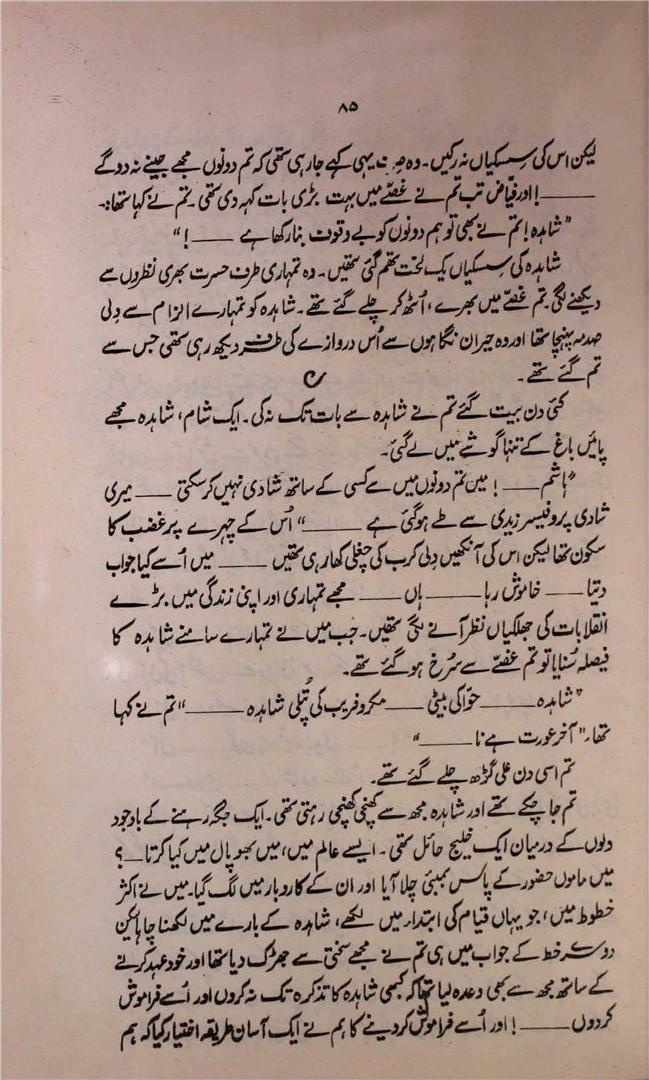 ۸۵
لیکن اس کی سسکیاں نہ رکیں۔ وہ صرف یہی کہے جا رہی تھی کہ تم دونوں مجھے جینے نہ دو گے
——! اور فیاض تب تم نے غصے میں بہت بڑی بات کہہ دی تھی۔ تم نے کہا تھا:۔
"شاہدہ! تم نے بھی تو ہم دونوں کو بے وقوف بنا رکھا ہے ——!"
شاہدہ کی سسکیاں یک لخت تھم گئی تھیں۔ وہ تمہاری طرف حسرت بھری نظروں سے
دیکھنے لگی۔ تم غصے میں بھرے، اُٹھ کر چلے گئے تھے۔ شاہدہ کو تمہارے الزام سے دِلی
صدمہ پہنچا تھا اور وہ حیران نگاہوں سے اُس دروازے کی طرف دیکھ رہی تھی جس سے
تم گئے تھے۔
کئی دن بیت گئے تم نے شاہدہ سے بات تک نہ کی۔ ایک شام، شاہدہ مجھے
پائیں باغ کے تنہا گوشے میں لے گئی۔
"ہاشم ——! میں تم دونوں میں سے کسی کے ساتھ شادی نہیں کر سکتی —— میری
شادی پروفیسر زیدی سے طے ہو گئی ہے ——" اُس کے چہرے پر غضب کا
سکون تھا لیکن اس کی آنکھیں دِلی کرب کی چغلی کھا رہی تھیں —— میں اُسے کیا جواب
دیتا —— خاموش رہا —— ہاں —— مجھے تمہاری اور اپنی زندگی میں بڑے
انقلابات کی جھلکیاں نظر آنے لگی تھیں۔ جب میں نے تمہارے سامنے شاہدہ کا
فیصلہ سُنایا تو تم غصے سے سُرخ ہو گئے تھے۔
"شاہدہ —— حوّا کی بیٹی —— مکر و فریب کی پُتلی شاہدہ ——" تم نے کہا
تھا۔ "آخر عورت ہے نا ——"
تم اسی دن علی گڑھ چلے گئے تھے۔
تم جا چکے تھے اور شاہدہ مجھ سے کھنچی کھنچی رہتی تھی۔ ایک جگہ رہنے کے باوجود
دلوں کے درمیان ایک خلیج حائل تھی۔ ایسے عالم میں، میں بھوپال میں کیا کرتا —؟
میں ماموں حضور کے پاس بمبئی چلا آیا اور ان کے کاروبار میں لگ گیا۔ میں نے اکثر
خطوط میں، جو یہاں قیام کی ابتدار میں لکھے، شاہدہ کے بارے میں لکھنا چاہا لیکن
دوسرے خط کے جواب میں ہی تم نے مجھے سختی سے جھڑک دیا تھا اور خود عہد کرنے
کے ساتھ مجھ سے بھی وعدہ لیا تھا کہ کبھی شاہدہ کا تذکرہ تک نہ کروں اور اُسے فراموش
کردوں ——! اور اُسے فراموش کر دینے کا ہم نے ایک آسان طریقہ اختیار کیا کہ ہم